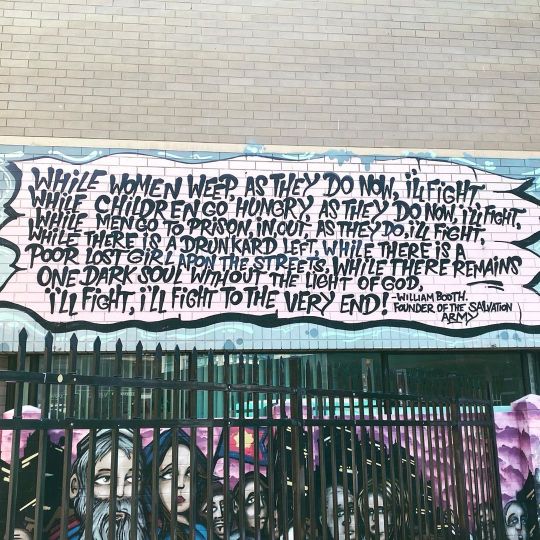 WHILE WOMEN WEEP, AS THEY DO NOW, i'LL FIGHT
WHILE CHILDREN GO HUNGRY, AS THEY DO NOW, i'LL FIGHT,
WHILE MEN GO TO PRISON, IN, OUT, AS THEY DO, iLL FIGHT,
WHILE THERE IS A DRUNKARD LEFT, WHILE THERE IS A
POOR LOST GIRL APON THE STREETS, WHILE THERE REMAINS
ONE DARK SOUL WITHOUT THE LIGHT OF GOD,
i'LL FIGHT, i'LL FIGHT TO THE VERY END!
-WILLIAM BOOTH.
FOUNDER OF THE SALVATION
ARMY